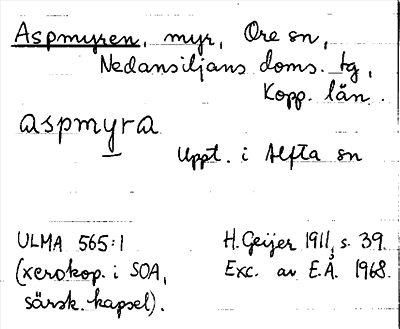 Aspmyren, myr, Ore sn,
Nedansiljans doms. tg,
Kopp. län.
aspmyra
Uppt. i Alfta sn
ULMA 565:1
(xerokop. i SOA,
särsk. kapsel).
H. Geijer 1911, s. 39.
Exc. av E.Å. 1968.